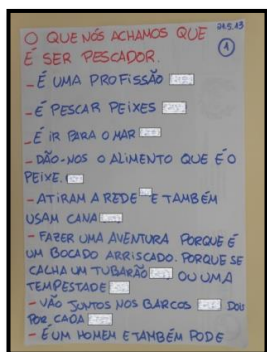 21.5.13
O QUE NÓS ACHAMOS QUE
1
É SER PESCADOR.
- É UMA PROFISSÃO
- É PESCAR PEIXES
- É IR PARA O MAR
- DÃO-NOS O ALIMENTO QUE É O
PEIXE.
- ATIRAM A REDE E TAMBÉM
USAM CANA
- FAZER UMA AVENTURA PORQUE É
UM BOCADO ARRISCADO. PORQUE SE
CALHA UM TUBARÃO OU UMA
TEMPESTADE
- VÃO JUNTOS NOS BARCOS DOIS
POR CADA
- É UM HOMEM E TAMBÉM PODE